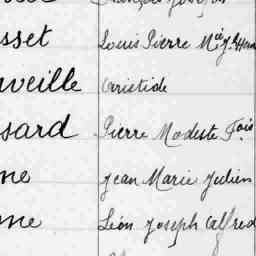 sset Louis Pierre Mie J.h
rveille Aristide
sard Pierre Modeste F.ois
ne Jean Marie Julien
me Léon Joseph Alfred